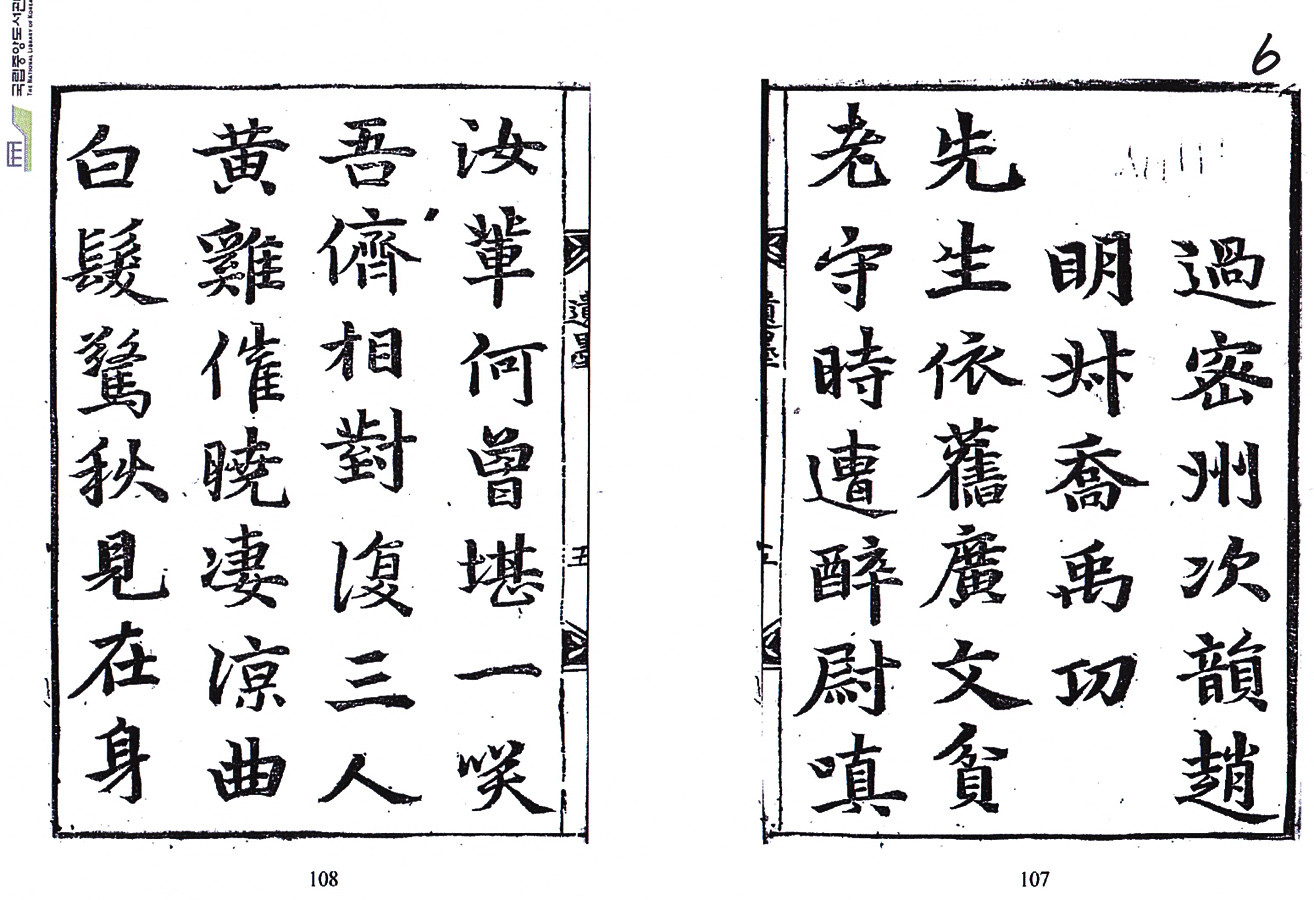 국립중앙도서관
THE NATIONAL LIBRARY OF KOREA
6
過密州次韻趙
明叔喬禹功
先生依舊廣文貧
老守時遭醉尉嗔
107
遺墨
五
汝輩何曾堪一咲
吾儕相對復三人
黃雞催曉凄涼曲
白髮驚秋見在身
108